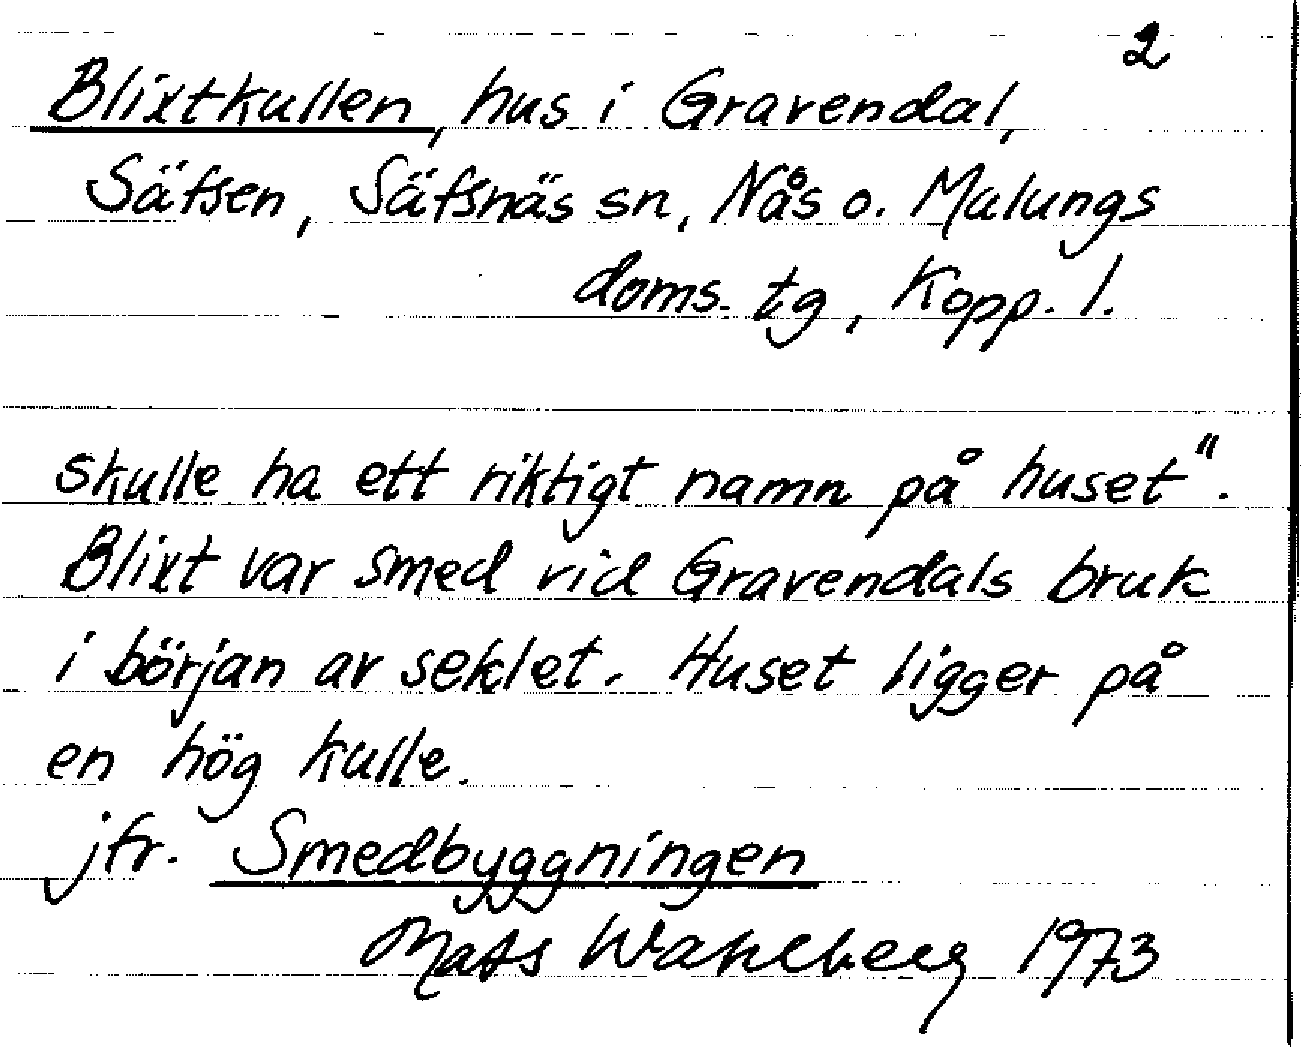 2
Blixtkullen, hus i Gravendal,
Säfsen, Säfsnäs sn, Nås o. Malungs
doms. tg, Kopp. l.
skulle ha ett riktigt namn på huset".
Blixt var smed vid Gravendals bruk
i början av seklet. Huset ligger på
en hög kulle.
jfr. Smedbyggningen
Mats Wahlberg 1973